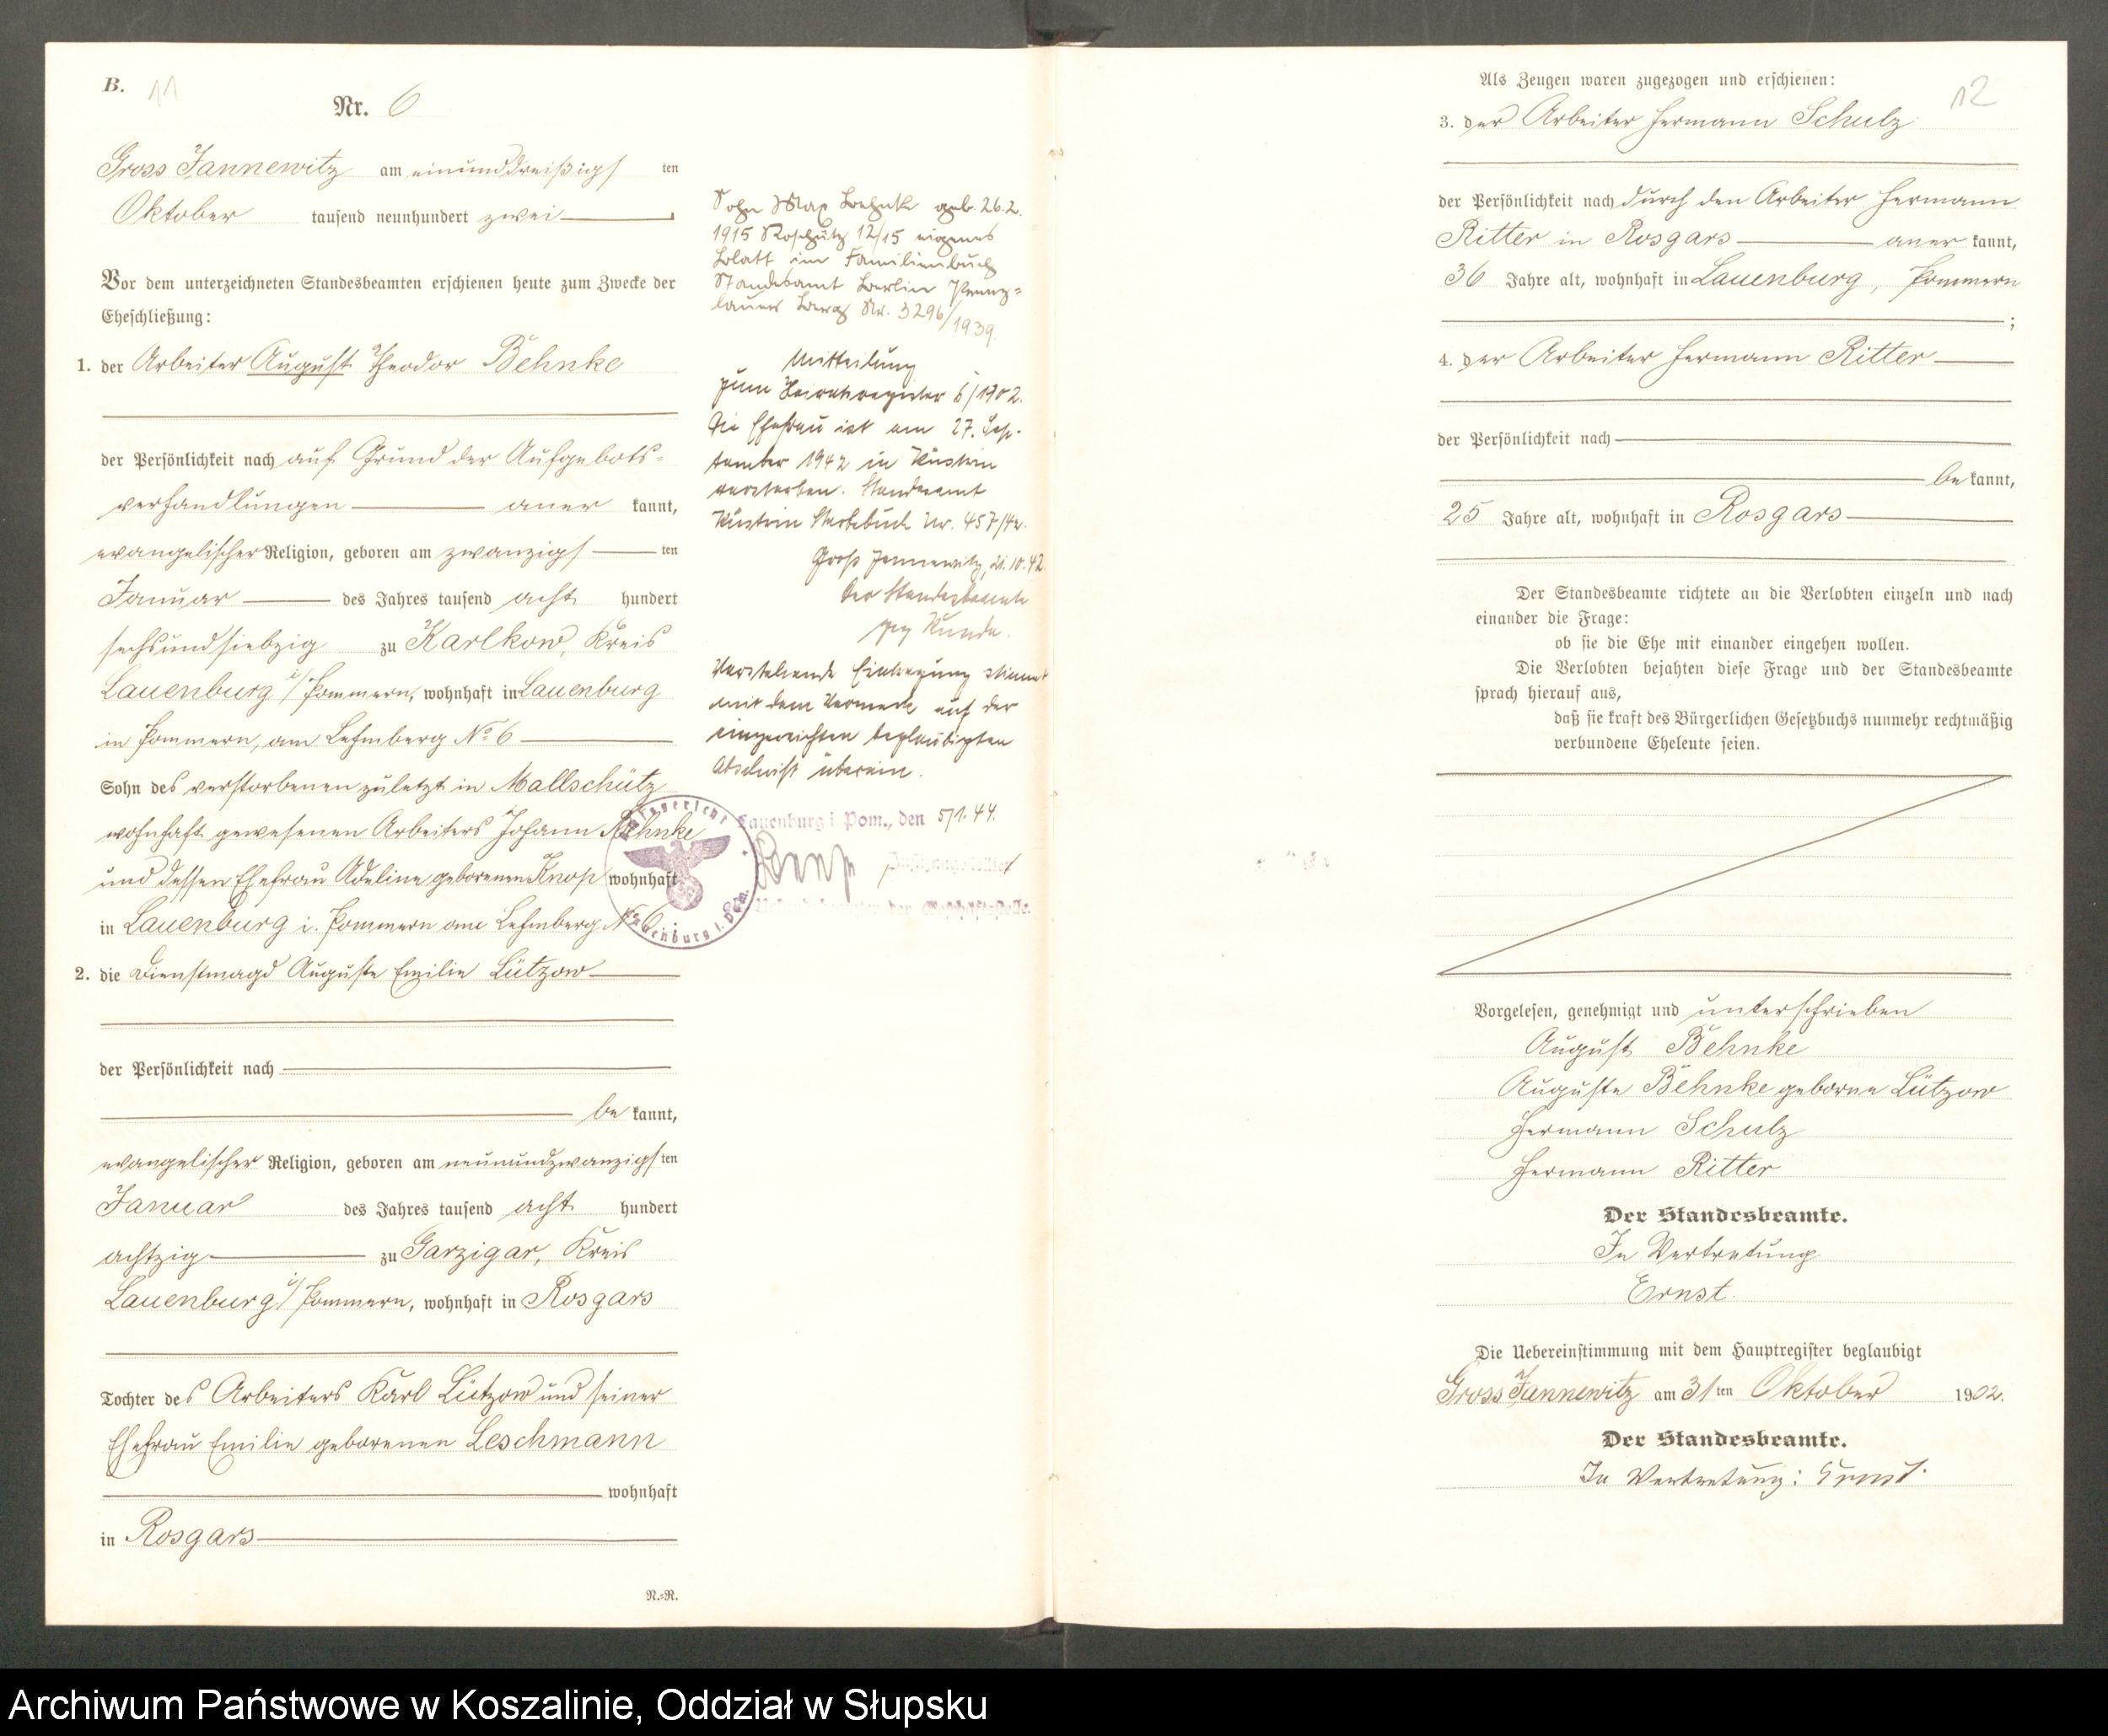 B. 11
Nr. 6
Gross Jannewitz am einunddreißigs ten
Oktober tausend neunhundert zwei
Vor dem unterzeichneten Standesbeamten erschienen heute zum Zwecke der
Eheschließung:
1. der Arbeiter August Theodor Behnke
der Persönlichkeit nach auf Grund der Aufgebots-
verhandlungen aner kannt,
evangelischer Religion, geboren am zwanzigs ten
Januar des Jahres tausend acht hundert
sechsundsiebzig zu Karlkow, Kreis
Lauenburg i/Pommern, wohnhaft in Lauenburg
in Pommern, am Lehmberg No 6
Sohn des verstorbenen zuletzt in Mallschütz
wohnhaft gewesenen Arbeiters Johann Behnke
und dessen Ehefrau Adeline geborenen Knop wohnhaft
in Lauenburg i. Pommern am Lehmberg No 6
2. die Dienstmagd Auguste Emilie Lützow
der Persönlichkeit nach
be kannt,
evangelischer Religion, geboren am neunundzwanzigs ten
Januar des Jahres tausend acht hundert
achtzig zu Garzigar, Kreis
Lauenburg i/Pommern, wohnhaft in Rosgars
Tochter des Arbeiters Karl Lützow und seiner
Ehefrau Emilie geborenen Leschmann
wohnhaft
in Rosgars
N.-R.
Sohn Max Behnke geb. 26.2.
1915 Roschütz 12/15 eigenes
Blatt im Familienbuch
Standesamt Berlin Prenz-
lauer Berg Nr. 3296/1939
Mitteilung
zum Heiratsregister 6/1902.
Die Ehefrau ist am 27. Sep-
tember 1942 in Küstrin
verstorben. Standesamt
Küstrin Sterbebuch Nr. 457/42.
Groß Jannewitz, 21.10.42.
Der Standesbeamte
gez Kunde.
Vorstehende Eintragung stimmt
mit dem Vermerk auf der
eingereichten beglaubigten
Abschrift überein.
Lauenburg i. Pom., den 5/1.44.
Justizangestellter
der Geschäftsstelle.
Amtsgericht
Lauenburg i. Pom.
Als Zeugen waren zugezogen und erschienen:
12
3. der Arbeiter Hermann Schulz
der Persönlichkeit nach durch den Arbeiter Hermann
Ritter in Rosgars aner kannt,
36 Jahre alt, wohnhaft in Lauenburg, Pommern
;
4. der Arbeiter Hermann Ritter
der Persönlichkeit nach
be kannt,
25 Jahre alt, wohnhaft in Rosgars
Der Standesbeamte richtete an die Verlobten einzeln und nach
einander die Frage:
ob sie die Ehe mit einander eingehen wollen.
Die Verlobten bejahten diese Frage und der Standesbeamte
sprach hierauf aus,
daß sie kraft des Bürgerlichen Gesetzbuchs nunmehr rechtmäßig
verbundene Eheleute seien.
Vorgelesen, genehmigt und unterschrieben
August Behnke
Auguste Behnke geborne Lützow
Hermann Schulz
Hermann Ritter
Der Standesbeamte.
In Vertretung
Ernst.
Die Uebereinstimmung mit dem Hauptregister beglaubigt
Gross Jannewitz am 31 ten Oktober 1902.
Der Standesbeamte.
In Vertretung: Ernst.
Archiwum Państwowe w Koszalinie, Oddział w Słupsku